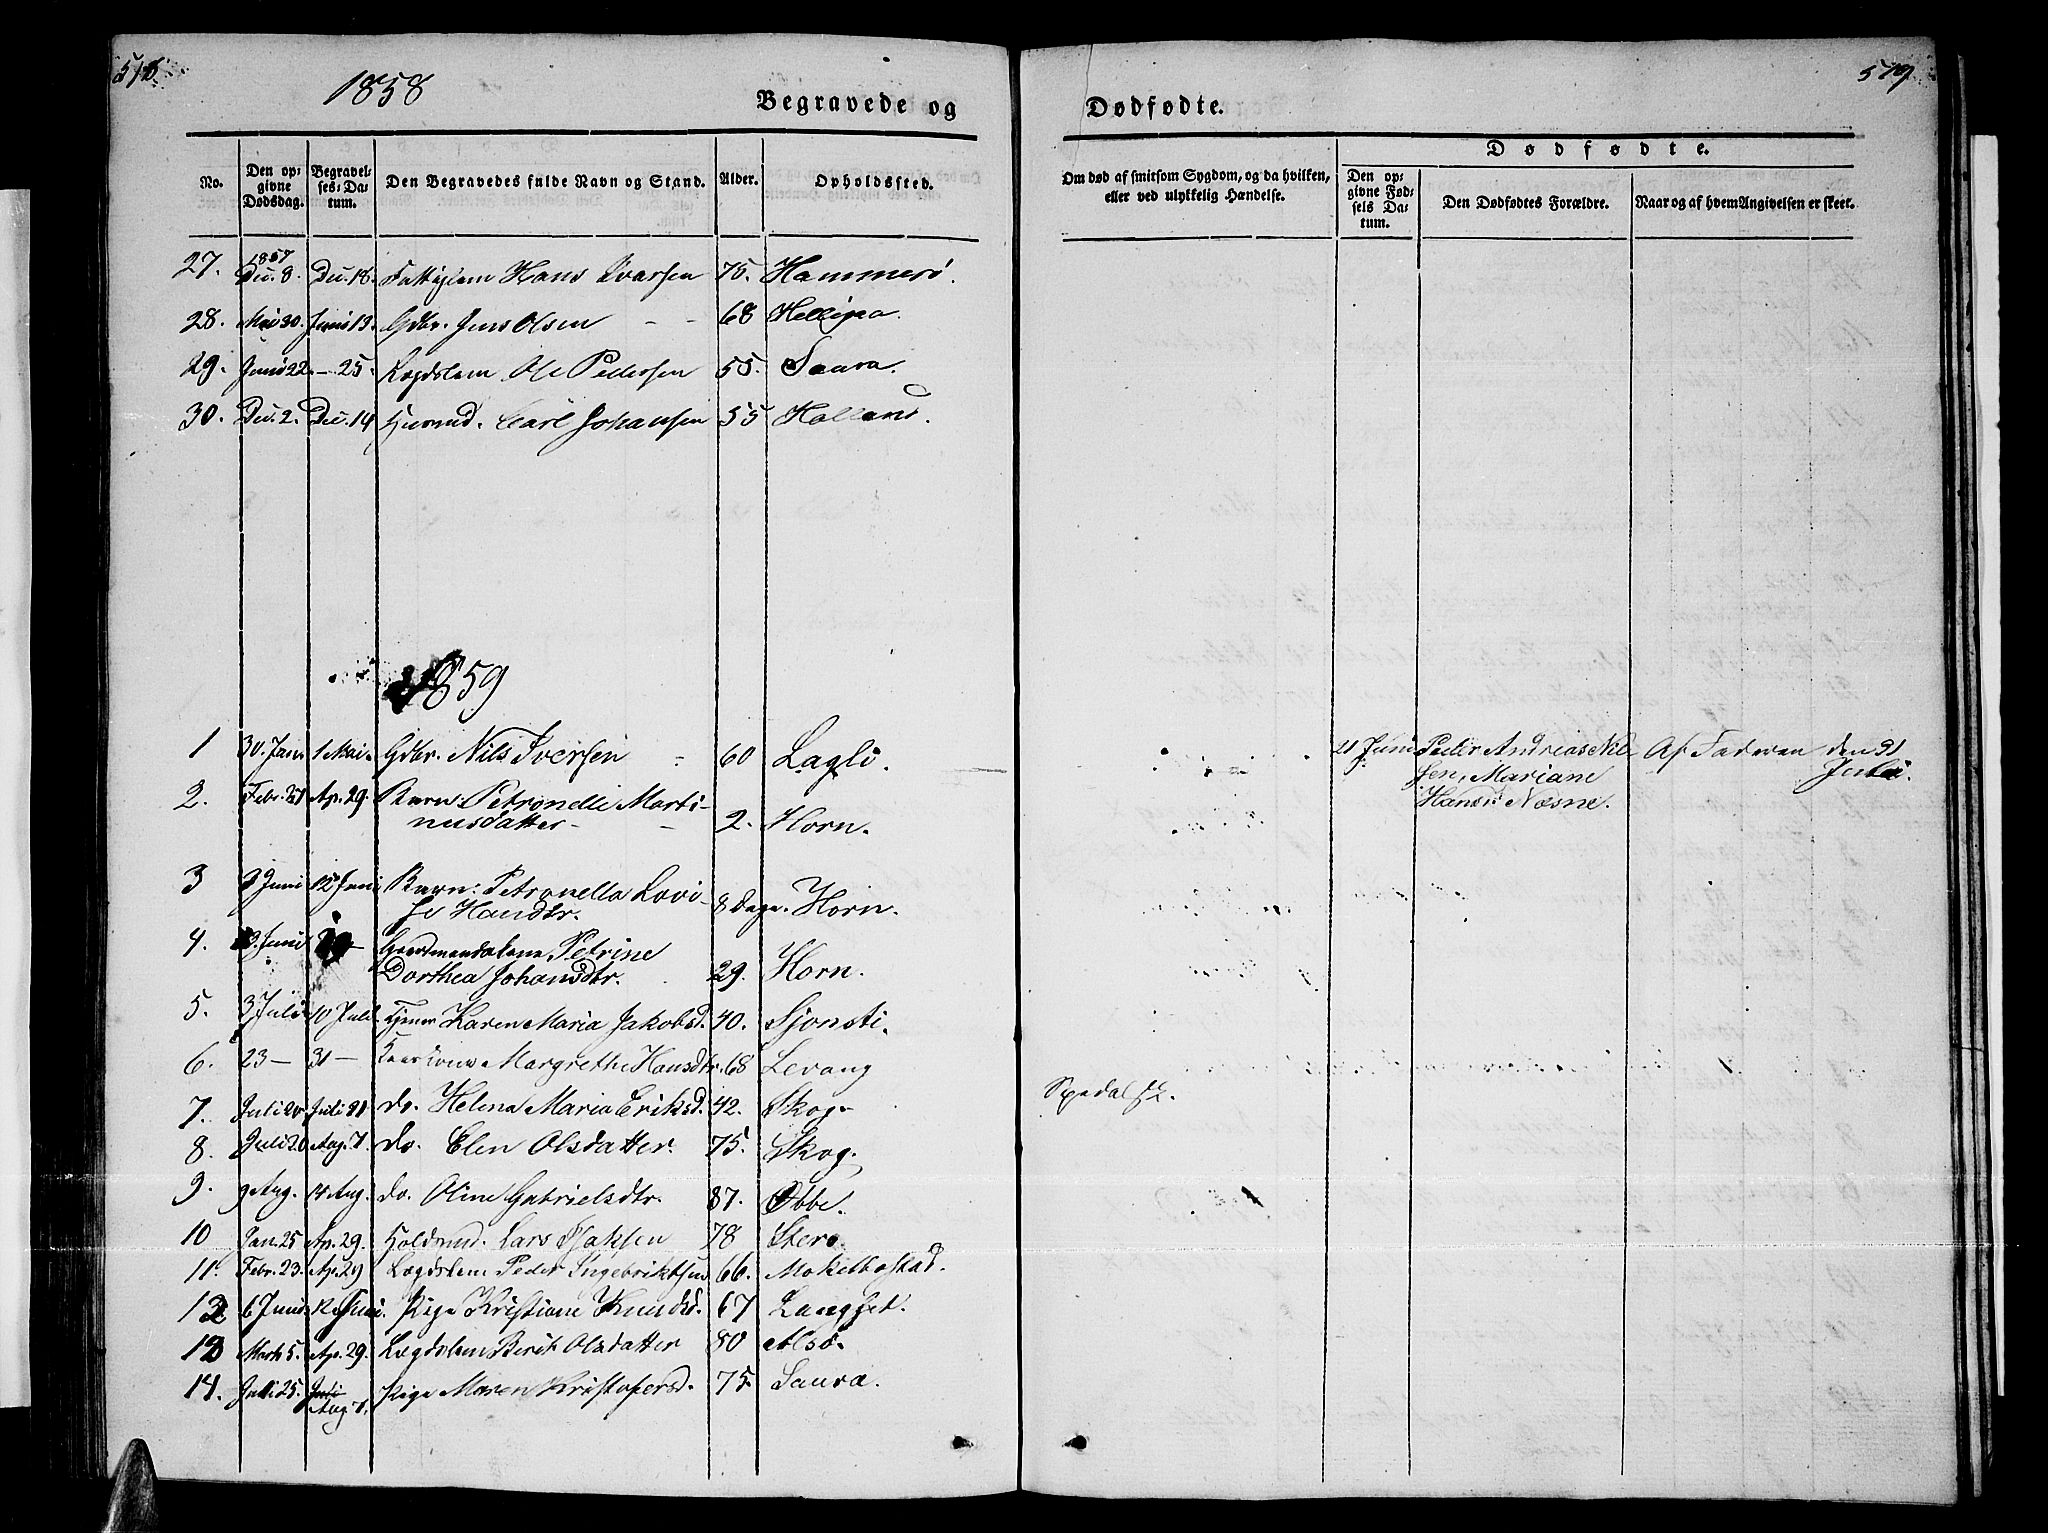 518
1858
Begravede og
No. Den opgivne Dødsdag. Begravelses-Datum. Den Begravedes fulde Navn og Stand. Alder. Opholdssted.
27. 1857 Dec. 8. Dec. 18. Fattiglem Hans Ivarsen 75. Hammerö.
28. Mai 30. Juni 13. Gdbr. Jens Olsen - - 68 Helligna.
29. Juni 22. - 25. Lægdslem Ole Pedersen 55. Saura.
30. Dec. 2. Dec. 14 Huusmd. Carl Johansen 55 Holland.
1859
1 30. Jan. 1 Mai. Gdbr. Nils Iversen - 60 Lagli.
2. Febr. 21 Ap. 29. Barn: Petronelle Marti-
nusdatter - - 2. Horn.
3 3 Juni 12 Juni Barn: Petronella Lovi-
se Hansdtr. 8 Dage. Horn.
4. 13. Juni - Gaardmandskone Petrine
Dorthea Johansdtr. 29. Horn.
5. 3 Juli 10 Juli. Tjener Karen Maria Jakobsd. 40. Sjonsti.
6. 23 - 31 - Kaarkone Margrethe Hansdtr. 68 Levang
7. Juli 20 Juli 31 do. Helena Maria Eriksd. 42. Skog.
8. Juli 20 Aug. 7. do. Elen Olsdatter. 75. Skog.
9. 9 Aug. 14 Aug. do. Oline Gabrielsdtr. 87. Øbbe.
10 Jan. 25 Ap. 29. Holdmd. Lars Isaksen 78 Stero.
11. Febr. 23. Ap. 29 Lægdslem Peder Ingebriktsen 66. Mokelbostad.
12 6 Juni 12 Juni. Pige Kristiane Knudsd. 67 Langset.
13 Marts 5. Ap. 29. Lægdslem Berit Olsdatter 80 Alsö.
14. Juli 25. Juli
Aug 7. Pige Maren Kristofersd. 75. Saura.
519
Dødfødte.
Dødfødte.
Om død af smitsom Sygdom, og da hvilken, eller ved ulykkelig Hændelse. Den opgivne Fødsels Datum. Den Dødfødtes Forældre. Naar og af hvem Angivelsen er skeet.
21 Juni Peder Andrias Nil- Af Faderen den 31
sen, Mariane Juli.
Hansd. Næsne.
Spedalsk.